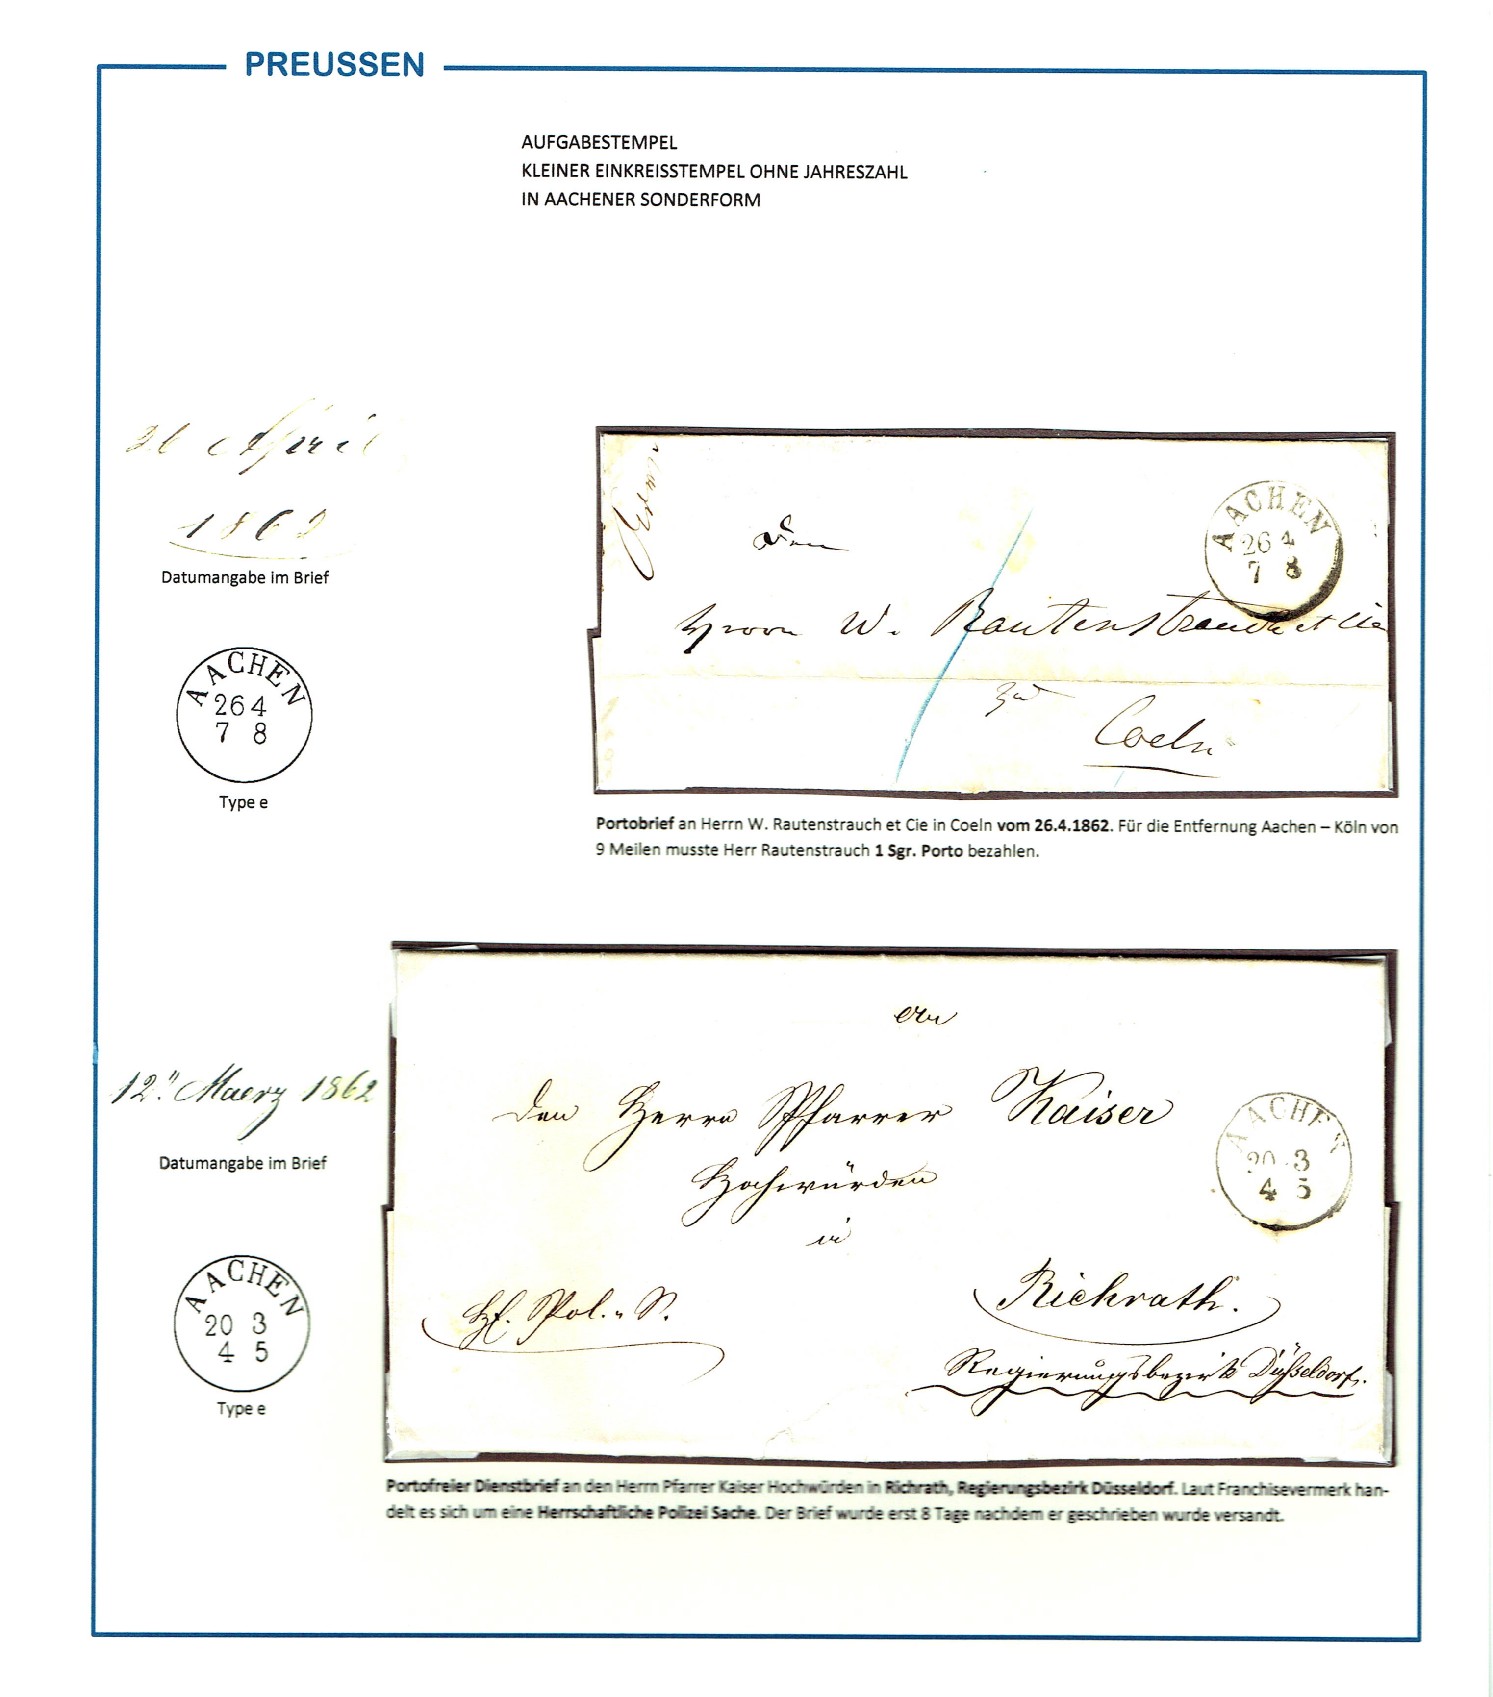 PREUSSEN
AUFGABESTEMPEL
KLEINER EINKREISSTEMPEL OHNE JAHRESZAHL
IN AACHENER SONDERFORM
26 April
1862
Datumangabe im Brief
AACHEN
26 4
7 8
Type e
Den
AACHEN
26 4
7 8
Herrn W. Rautenstrauch et Cie
zu
Coeln
Portobrief an Herrn W. Rautenstrauch et Cie in Coeln vom 26.4.1862. Für die Entfernung Aachen – Köln von
9 Meilen musste Herr Rautenstrauch 1 Sgr. Porto bezahlen.
12. Maerz 1862
Datumangabe im Brief
AACHEN
20 3
4 5
Type e
An
den Herrn Pfarrer Kaiser
Hochwürden
in
Richrath.
Regierungsbezirk Düsseldorf.
Hf. Pol. S.
AACHEN
20 3
4 5
Portofreier Dienstbrief an den Herrn Pfarrer Kaiser Hochwürden in Richrath, Regierungsbezirk Düsseldorf. Laut Franchisevermerk han-
delt es sich um eine Herrschaftliche Polizei Sache. Der Brief wurde erst 8 Tage nachdem er geschrieben wurde versandt.